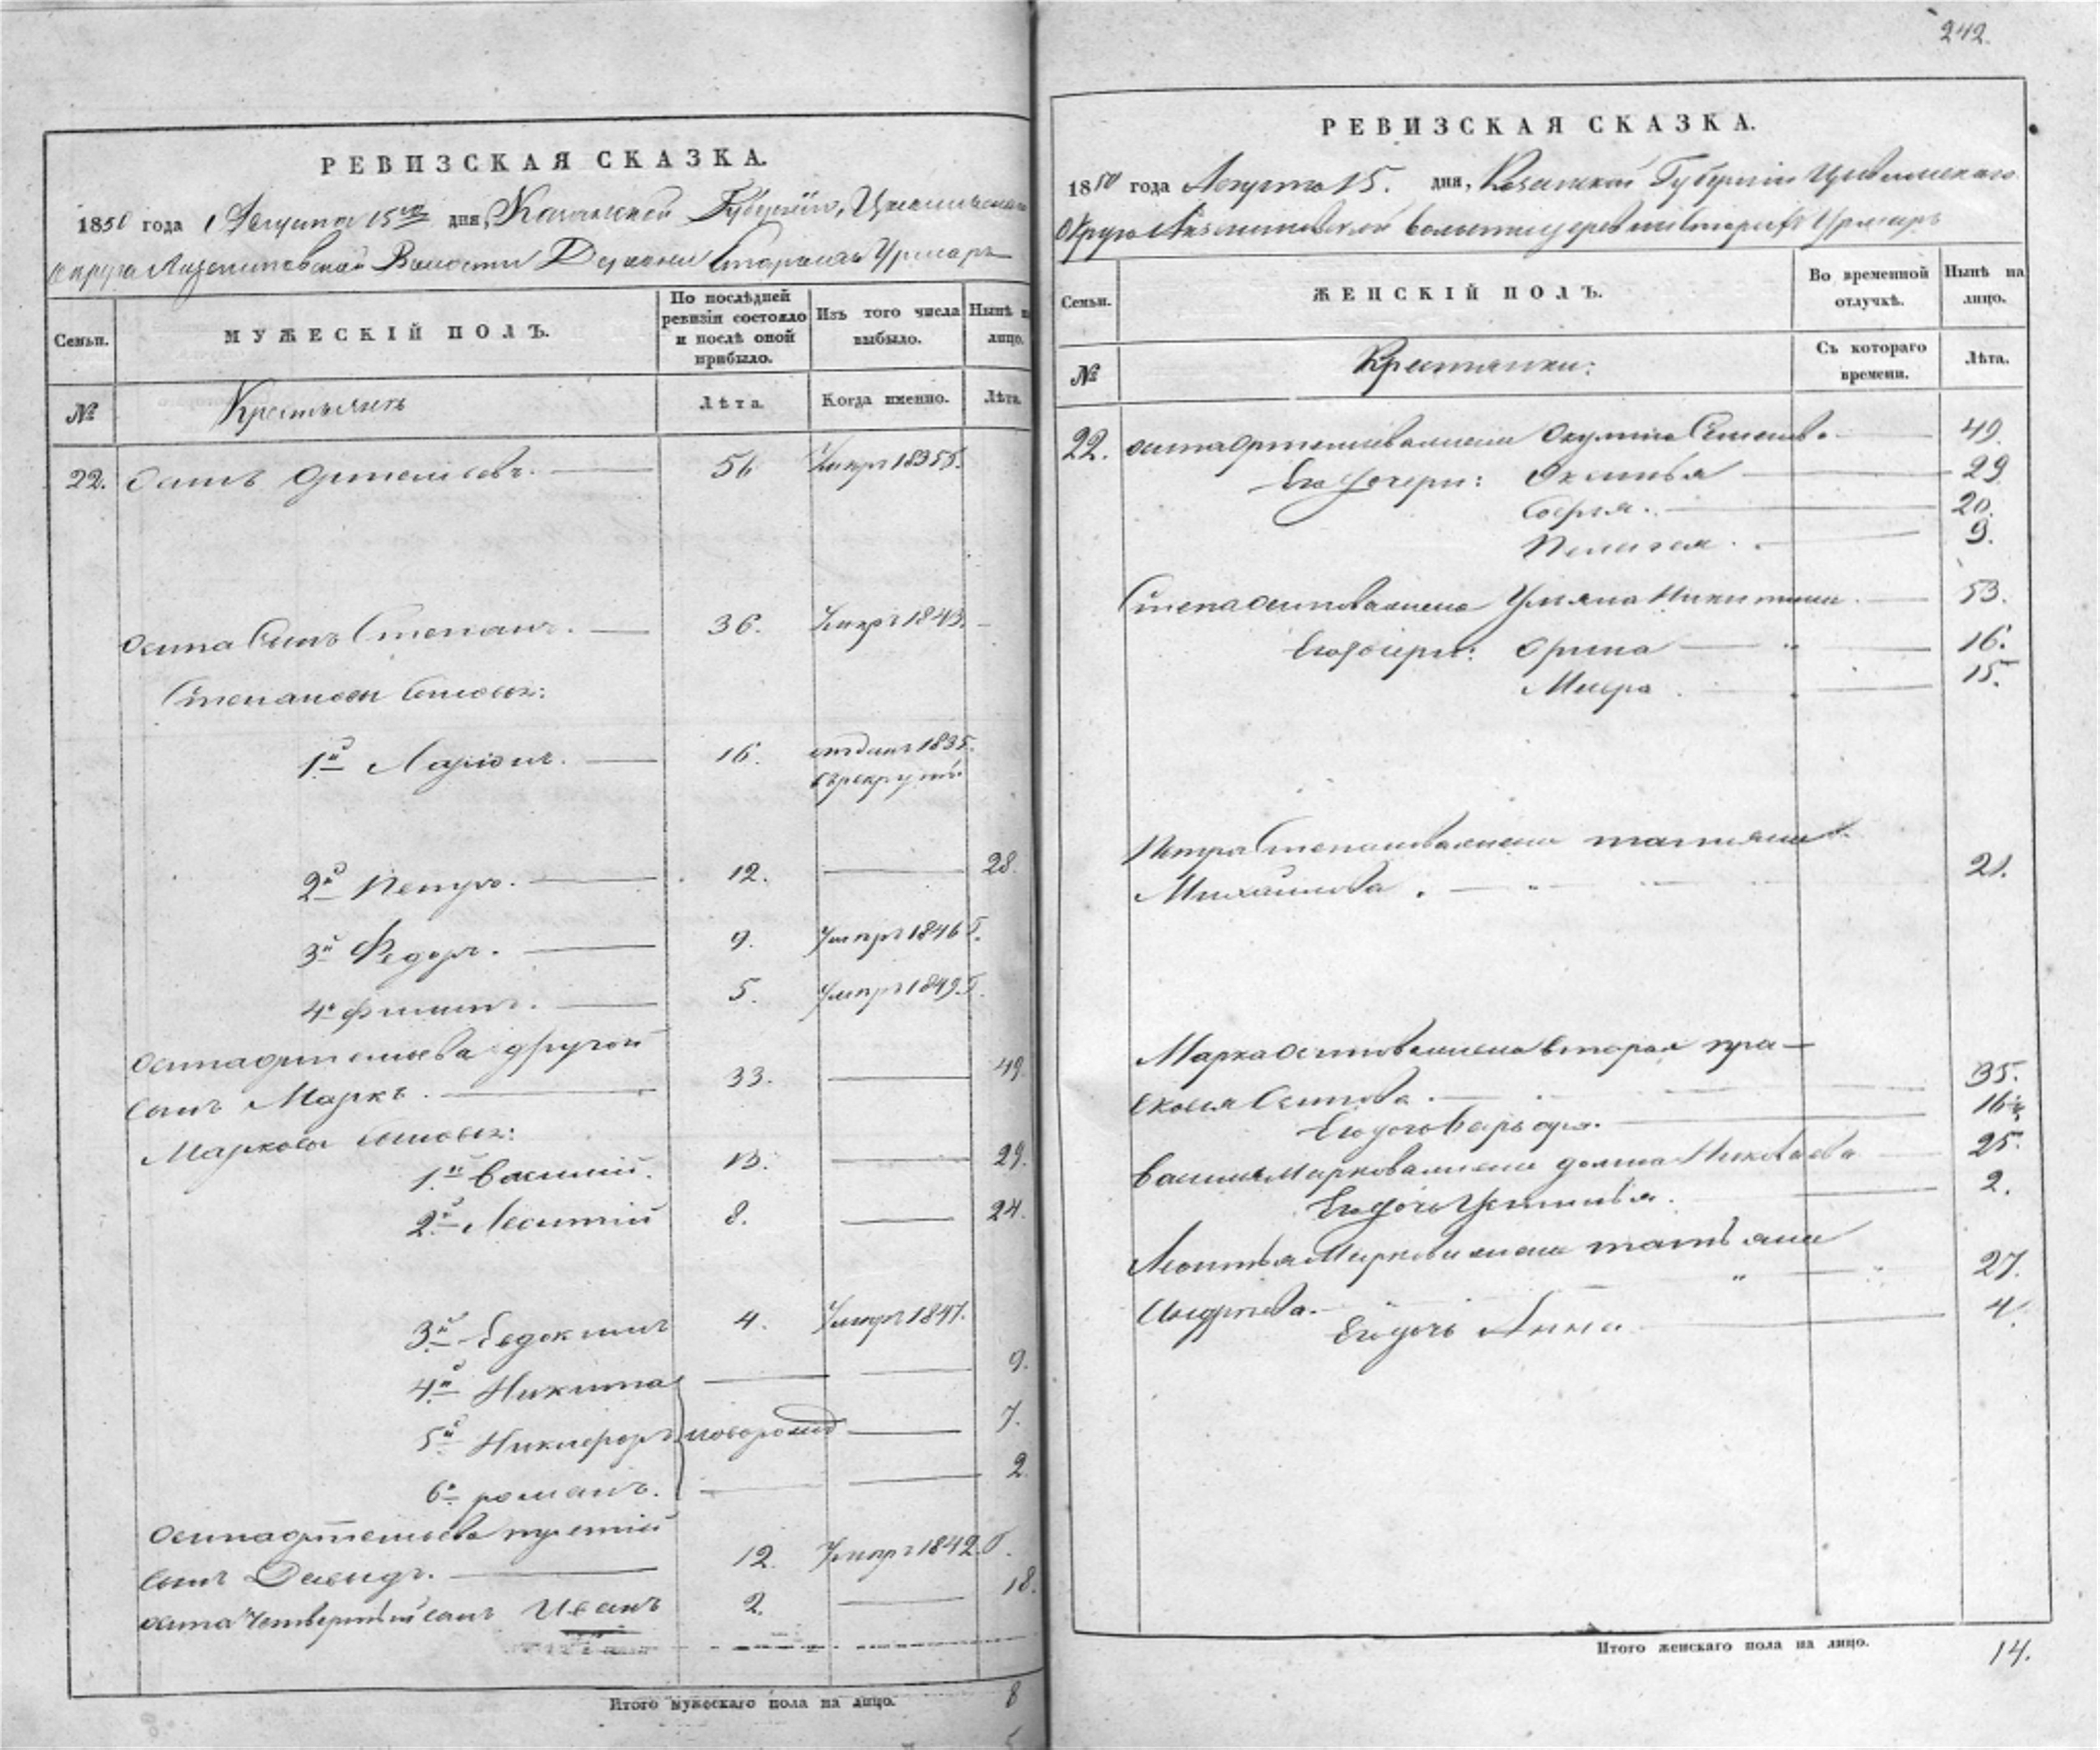 РЕВИЗСКАЯ СКАЗКА.
1850 года Августа 15го дня, Казанской Губернiи, Цивильскаго
округа Волости Деревни Старыхъ Урмаръ
Семьи.
МУЖЕСКIЙ ПОЛЪ.
По послѣдней ревизiи состояло и послѣ оной прибыло.
Изъ того числа выбыло.
Нынѣ на лицо.
№
Крестьянъ
Лѣта.
Когда именно.
Лѣта.
22. Осипъ Артемьевъ. 51 Умеръ 1835г.
Осипа Сынъ Степанъ. 36. Умеръ 1843.
Степановы Сыновья:
1й Ларiонъ. 16. отданъ 1835.
въ рекруты
2й Петръ. 12. 28.
3й Федоръ. 9. Умеръ 1846 Г.
4й Филипъ. 5. Умеръ 1849. Г.
Осипа Артемьева другой
Сынъ Маркъ. 33. 49.
Марковы Сыновья:
1й Василiй. 13. 29.
2й Леонтiй 8. 24.
3й Евдокимъ 4. Умеръ 1847.
4й Никита 9.
5й Никифоръ новорожд 7.
6й романъ. 2.
Осипа Артемьева третiй
Сынъ Давидъ. 12. Умеръ 1842. Г.
Осипа Четвертый сынъ Иванъ 2. 18.
Итого мужескаго пола на лицо. 8
242.
РЕВИЗСКАЯ СКАЗКА.
1850 года Августа 15. дня, Казанской Губернiи Цивильскаго
Округа Волости деревни Старыхъ Урмаръ
Семьи.
ЖЕНСКIЙ ПОЛЪ.
Во временной отлучкѣ.
Нынѣ на лицо.
№
Крестьянки:
Съ котораго времени.
Лѣта.
22. Осипа Артемьева жена Окулина Семенова 49.
Его дочери: Оксинья 29.
Софья. 20.
Пелагея. 9.
Степана Осипова жена Ульяна Никитина. 53.
Его дочери: Орина 16.
Мавра. 15.
Петра Степанова жена татьяна
Михайлова. 21.
Марка Осипова жена вторая пра-
сковья Осипова. 35.
Его дочь Дарья. 16
Василья Маркова жена домна Николаева 25.
Его дочь Устинья. 2.
Леонтья Маркова жена татьяна
Андреева. 27.
Его дочь Анна 4.
Итого женскаго пола на лицо. 14.